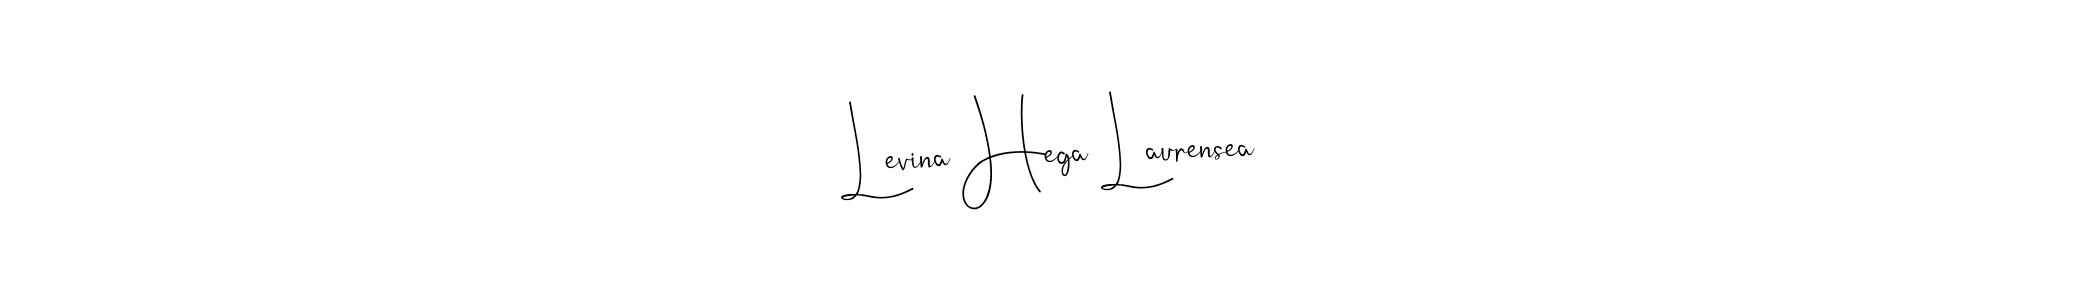 Levina Hega Laurensea